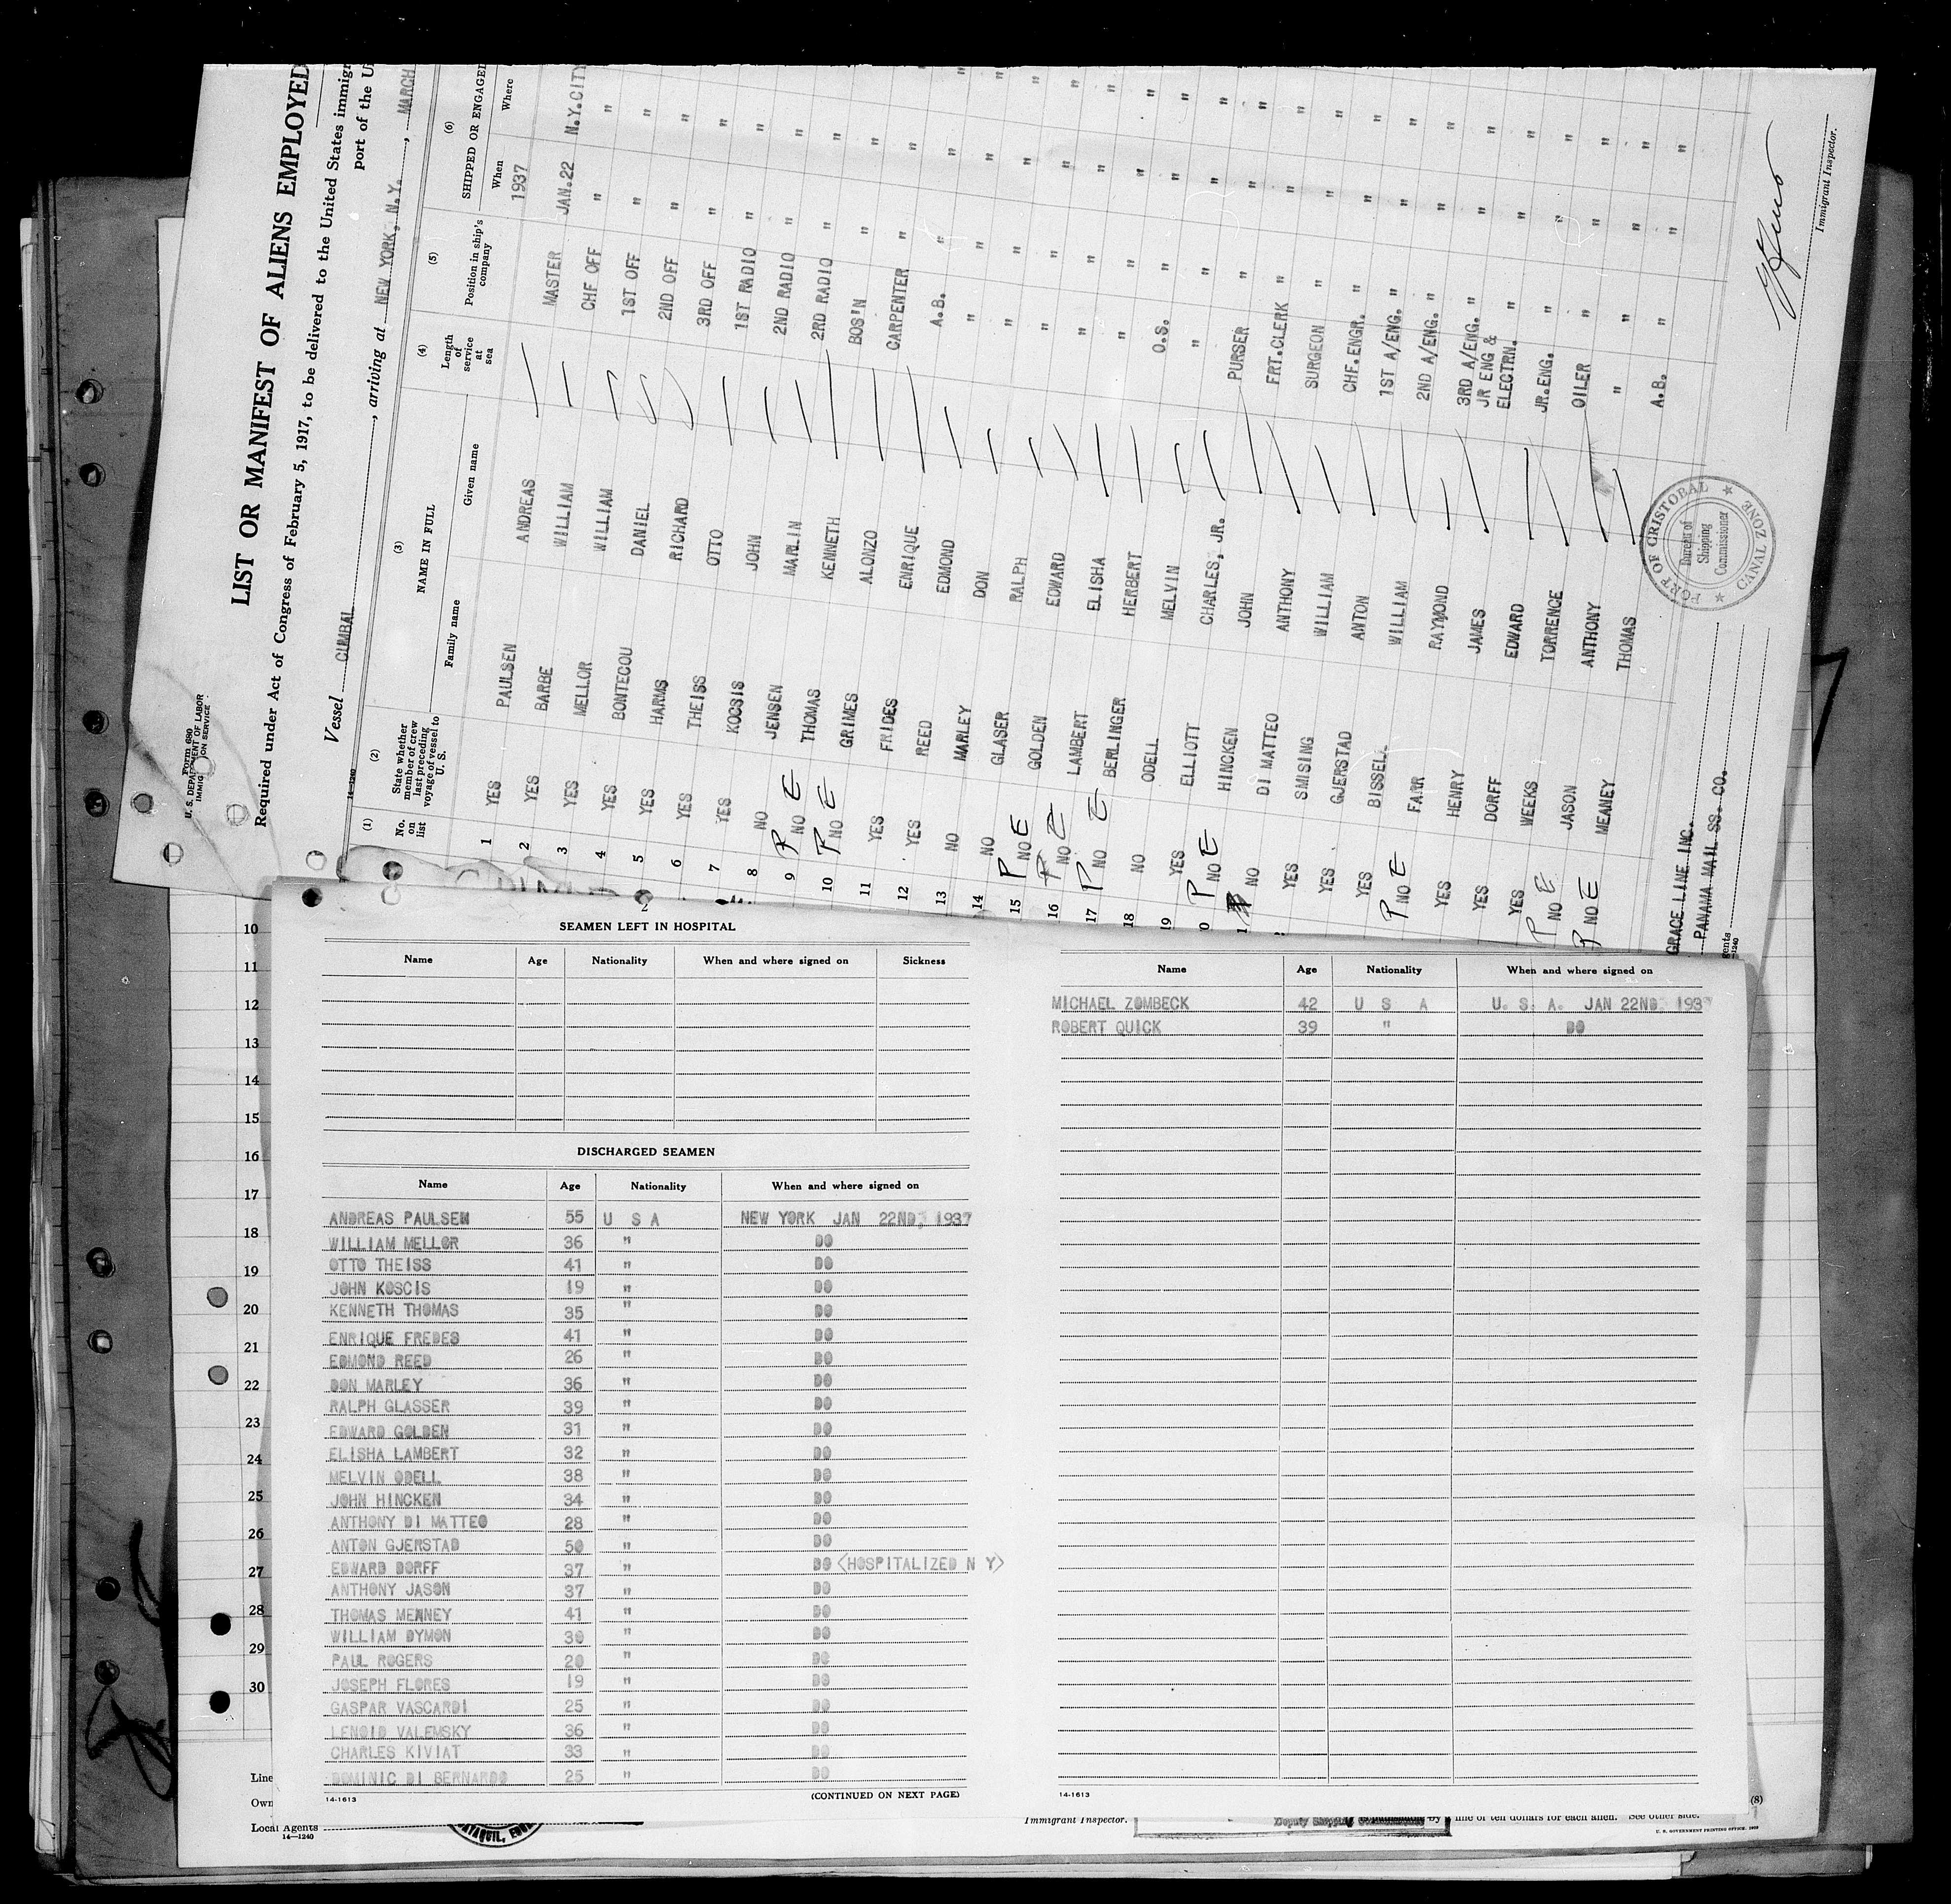 Form 680
U. S. DEPARTMENT OF LABOR
IMMIGRATION SERVICE
LIST OR MANIFEST OF ALIENS EMPLOYED
Required under Act of Congress of February 5, 1917, to be delivered to the United States immigr
port of the Un
Vessel CUMBAL, arriving at NEW YORK, N.Y., MARCH
14-1240
(1) (2) (3) (4) (5) (6)
No. on list State whether member of crew last preceding voyage of vessel to U. S. NAME IN FULL Length of service at sea Position in ship's company SHIPPED OR ENGAGED
Family name Given name When Where
1937
1 YES PAULSEN ANDREAS MASTER JAN.22 N.Y.CITY
2 YES BARBE WILLIAM CHF OFF " "
3 YES MELLOR WILLIAM 1ST OFF " "
4 YES BONTECOU DANIEL 2ND OFF " "
5 YES HARMS RICHARD 3RD OFF " "
6 YES THEISS OTTO 1ST RADIO " "
7 YES KOCSIS JOHN 2ND RADIO " "
8 NO JENSEN MARLIN 2RD RADIO " "
9 P NO E THOMAS KENNETH BOS'N " "
10 P NO E GRIMES ALONZO CARPENTER " "
11 YES FRIDES ENRIQUE A.B. " "
12 YES REED EDMOND " " "
13 NO MARLEY DON " " "
14 NO GLASER RALPH " " "
15 P NO E GOLDEN EDWARD " " "
16 P NO E LAMBERT ELISHA " " "
17 P NO E BERLINGER HERBERT O.S. " "
18 NO ODELL MELVIN " " "
19 YES ELLIOTT CHARLES, JR. PURSER " "
0 P NO E HINCKEN JOHN FRT.CLERK " "
1 NO DI MATTEO ANTHONY SURGEON " "
YES SMISING WILLIAM CHF.ENGR. " "
YES GJERSTAD ANTON 1ST A/ENG. " "
YES BISSELL WILLIAM 2ND A/ENG. " "
P NO E FARR RAYMOND 3RD A/ENG. " "
YES HENRY JAMES JR ENG & ELECTRN. " "
YES DORFF EDWARD JR.ENG. " "
YES WEEKS TORRENCE OILER " "
P NO E JASON ANTHONY " " "
P NO E MEANEY THOMAS A.B. " "
GRACE LINE INC.
PANAMA MAIL SS. CO.
gents
1240
PORT OF CRISTOBAL
Bureau of
Shipping
Commissioner
CANAL ZONE
Immigrant Inspector.
10
11
12
13
14
15
16
17
18
19
20
21
22
23
24
25
26
27
28
29
30
SEAMEN LEFT IN HOSPITAL
Name Age Nationality When and where signed on Sickness
DISCHARGED SEAMEN
Name Age Nationality When and where signed on
ANDREAS PAULSEN 55 U S A NEW YORK JAN 22ND, 1937
WILLIAM MELLOR 36 " DO
OTTO THEISS 41 " DO
JOHN KOSCIS 19 " DO
KENNETH THOMAS 35 " DO
ENRIQUE FREDES 41 " DO
EDMOND REED 26 " DO
DON MARLEY 36 " DO
RALPH GLASSER 39 " DO
EDWARD GOLDEN 31 " DO
ELISHA LAMBERT 32 " DO
MELVIN ODELL 38 " DO
JOHN HINCKEN 34 " DO
ANTHONY DI MATTEO 28 " DO
ANTON GJERSTAD 50 " DO
EDWARD DORFF 37 " DO (HOSPITALIZED N Y)
ANTHONY JASON 37 " DO
THOMAS MENNEY 41 " DO
WILLIAM DYMON 30 " DO
PAUL ROGERS 20 " DO
JOSEPH FLORES 19 " DO
GASPAR VASCARDI 25 " DO
LENOID VALEMSKY 36 " DO
CHARLES KIVIAT 33 " DO
DOMINIC DI BERNARDO 25 " DO
14-1613 (CONTINUED ON NEXT PAGE)
Name Age Nationality When and where signed on
MICHAEL ZOMBECK 42 U S A U. S. A. JAN 22ND 1937
ROBERT QUICK 39 " DO
14-1613
Line
Own
Local Agents
14—1240
Immigrant Inspector.
Deputy Shipping Commissioner
by
fine of ten dollars for each alien. See other side.
(8)
U. S. GOVERNMENT PRINTING OFFICE